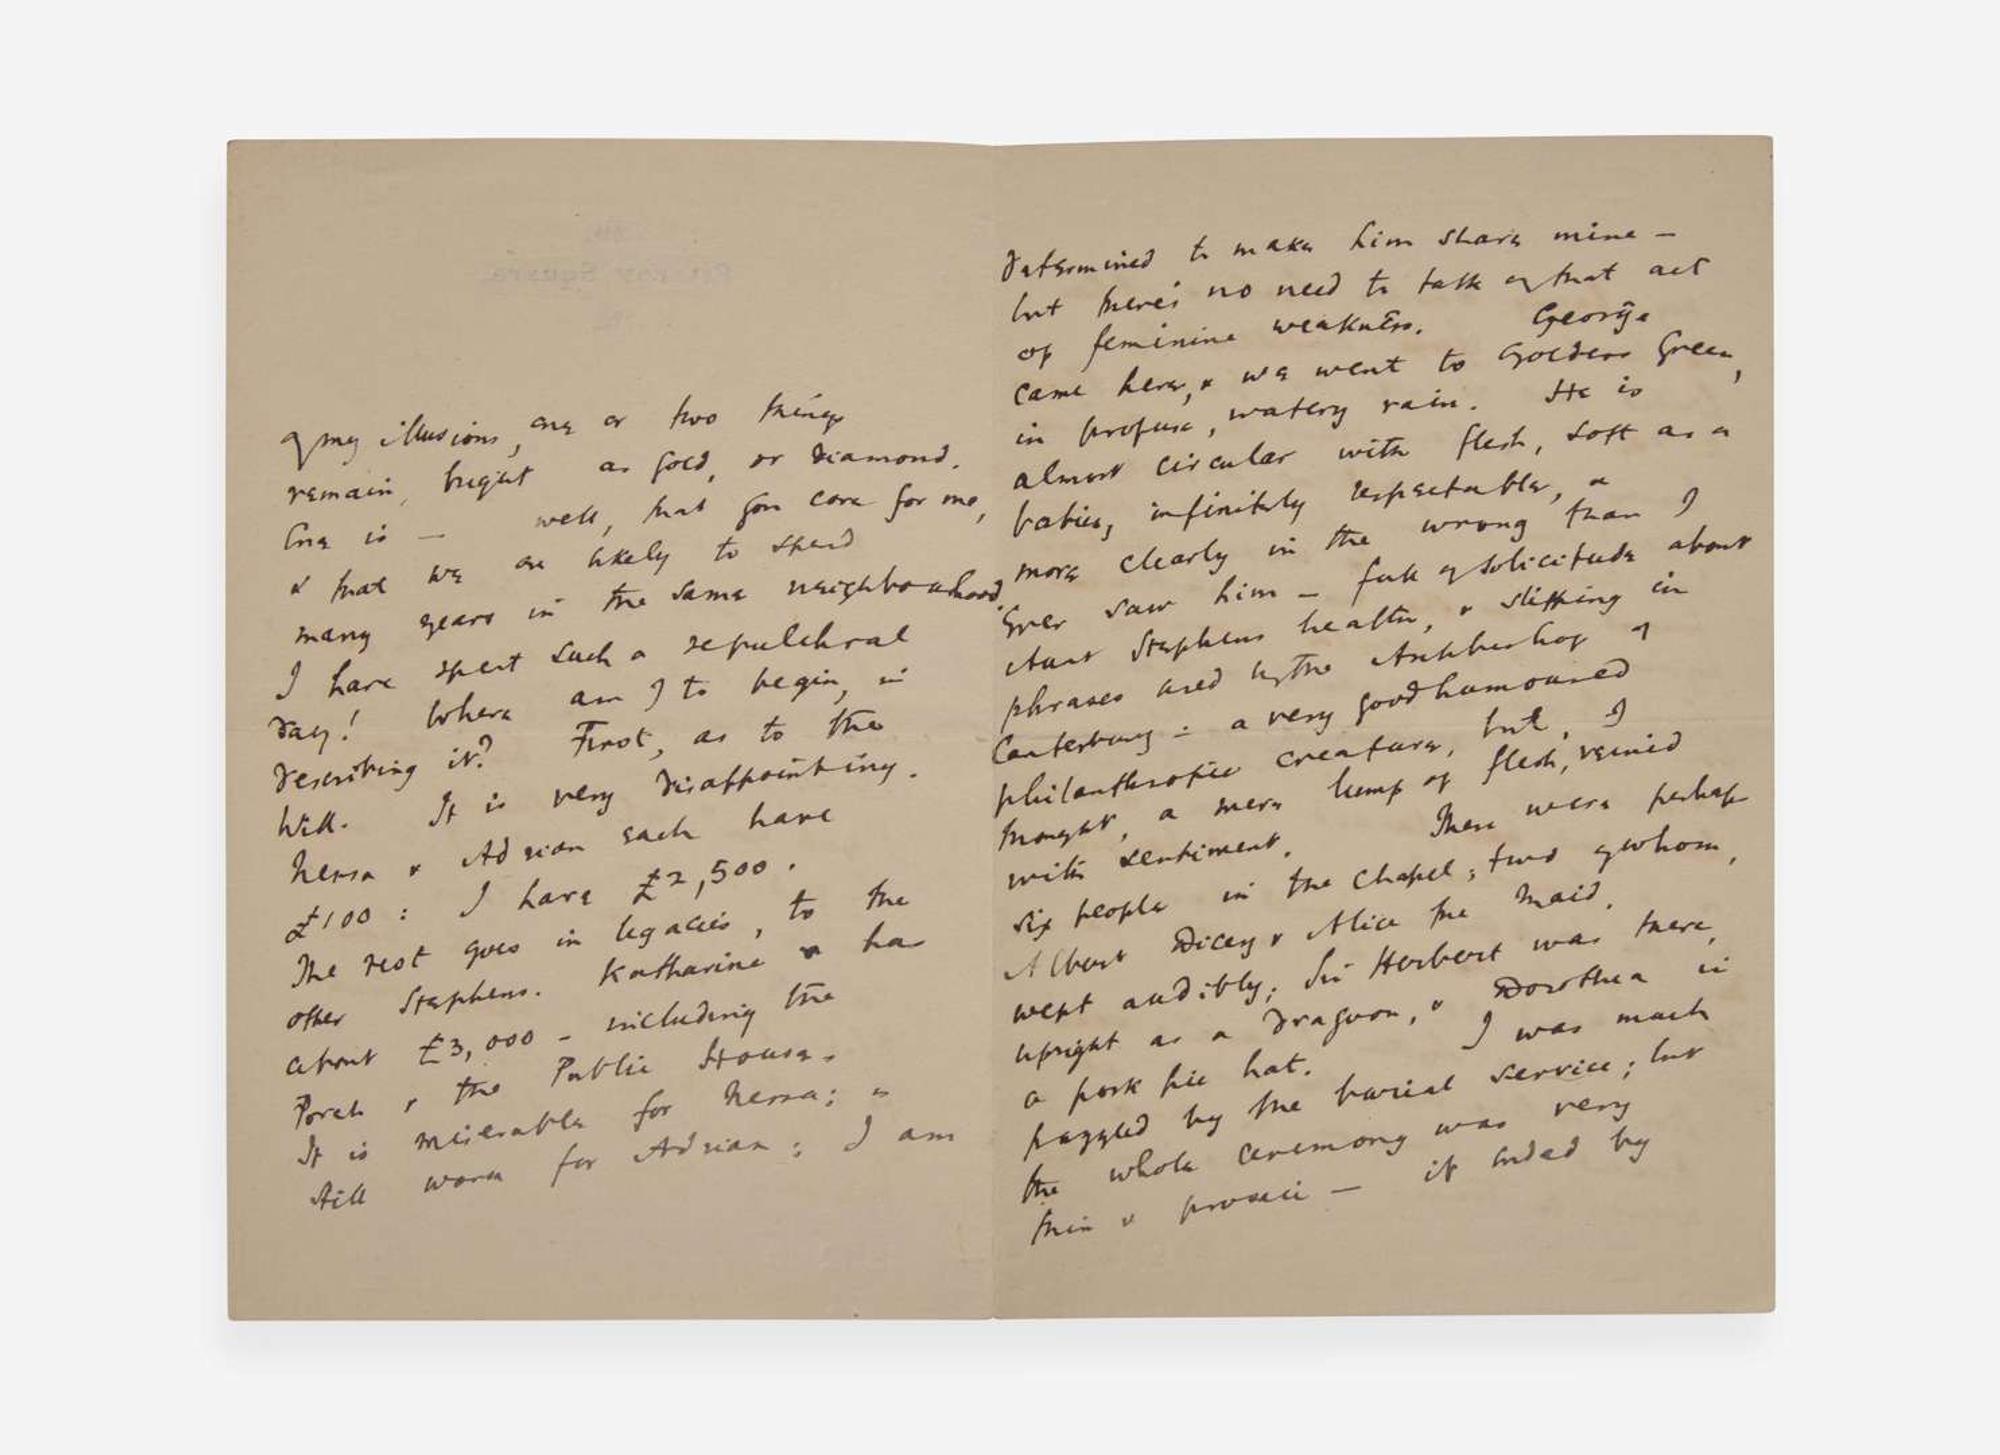 Fitzroy Square
of my illusions, one or two things
remain, bright as gold, or diamond.
One is — well, that you care for me,
& that we are likely to spend
many years in the same neighbourhood.
I have spent such a sepulchral
day! Where am I to begin, in
describing it? First, as to the
Will. It is very disappointing.
Nessa & Adrian each have
£100: I have £2,500.
The rest goes in legacies, to the
other Stephens. Katharine has
about £3,000 – including the
Porch & the Public House.
It is miserable for Nessa; &
still worse for Adrian; I am
determined to make him share mine —
but there's no need to talk of that act
of feminine weakness. George
came here, & we went to Golders Green,
in profuse, watery rain. He is
almost circular with flesh, soft as a
babies, infinitely respectable, &
more clearly in the wrong than I
ever saw him — full of solicitude about
Aunt Stephens health, & slipping in
phrases used by the Archbishop of
Canterbury: a very goodhumoured
philanthropic creature, but, I
thought, a mere lump of flesh, veined
with sentiment. There were perhaps
six people in the chapel; two of whom,
Albert Dicey & Alice the maid,
wept audibly; Sir Herbert was there,
upright as a Dragoon, & Dorothea in
a pork pie hat. I was much
puzzled by the burial service; but
the whole ceremony was very
thin & prosaic — it ended by